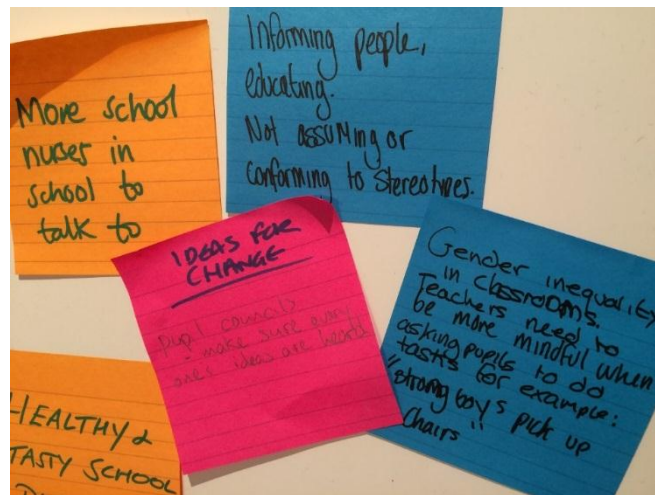 More school
nurses in
school to
talk to
Informing people,
educating.
Not assuming or
conforming to stereotypes.
IDEAS FOR
CHANGE
pupil councils
- make sure every
one's ideas are heard
Gender inequality
in classrooms.
Teachers need to
be more mindful when
asking pupils to do
tasks for example:
"strong boys pick up
chairs"
HEALTHY &
TASTY SCHOOL